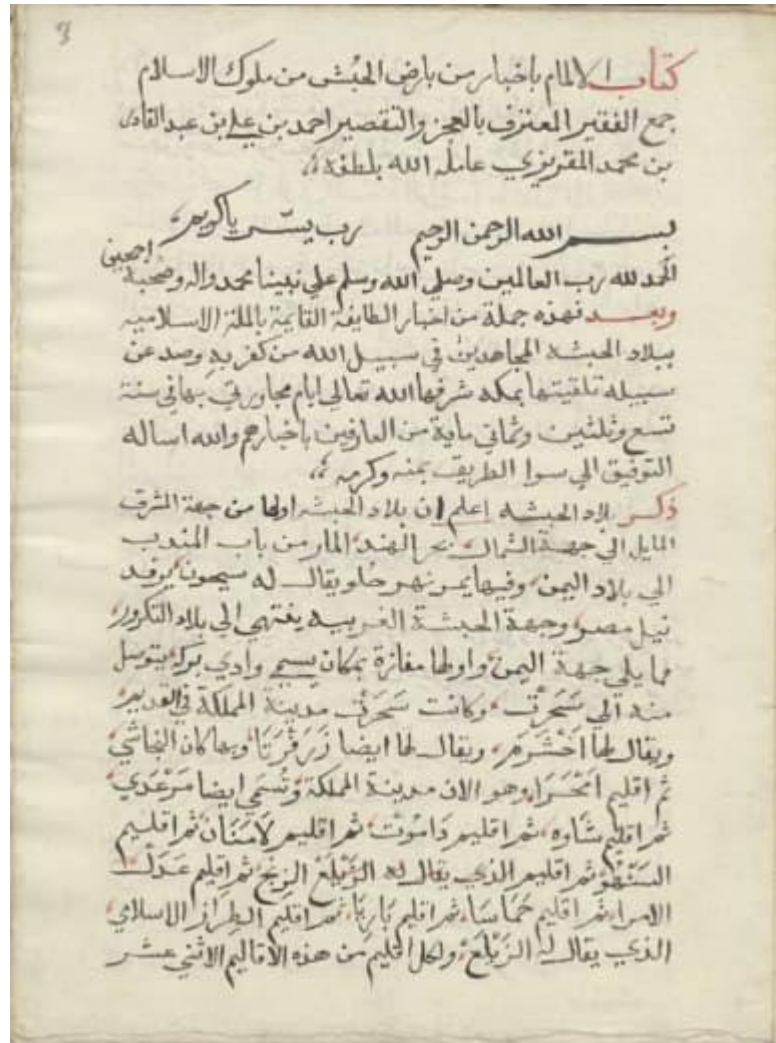 3
كتاب الالمام باخبار من بارض الحبش من ملوك الاسلام
جمع الفقير المعترف بالعجز والتقصير احمد بن علي بن عبد القادر
بن محمد المقريزي عامله الله بلطفه
بسم الله الرحمن الرحيم رب يسر ياكريم
الحمد لله رب العالمين وصلي الله وسلم علي نبينا محمد واله وصحبه اجمعين
وبعد فهذه جملة من اخبار الطايفة القايمة بالملة الاسلاميه
ببلاد الحبشه المجاهدين في سبيل الله من كفر به وصد عن
سبيله تلقيتها بمكه شرفها الله تعالي ايام مجاورتي بها في سنة
تسع وثلثين وثماني ماية من العارفين باخبارهم والله اساله
التوفيق الي سوا الطريق بمنه وكرمه
ذكر بلاد الحبشه اعلم ان بلاد الحبشه اولها من جهة المشرق
المايل الي جهة الشمال بحر الهند المار من باب المندب
الي بلاد اليمن وفيها يمر نهر حلو يقال له سيحون يرفد
نيل مصر وجهة الحبشة الغربيه ينتهي الي بلاد التكرور
مما يلي جهة اليمن واولها مفازة بمكان يسمي وادي بركه يتوصل
منه الي سَحَرْت وكانت سَحَرْت مدينة المملكة في القديم
ويقال لها اَخْشَرَم ويقال لها ايضا زَرَفْرَتَا وبها كان النجاشي
ثم اقليم اَمْحَرَا وهو الان مدينة المملكة وتُسَمي ايضا مَرْعَدي
ثم اقليم شَاوه ثم اقليم دَامُوت ثم اقليم لَامَنَان ثم اقليم
السَنْهُو ثم اقليم الذي يقال له الزَيْلَع الزنج ثم اقليم عَدَل
الامرا ثم اقليم حَمَاسَا ثم اقليم بَارِيَا ثم اقليم الطِرَاز الاسلامي
الذي يقال له الزَيْلَع ولكل اقليم من هذه الاقاليم الاثني عشر